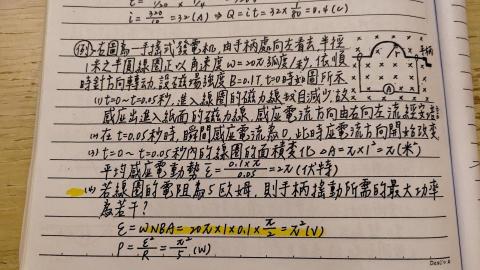 i = 320/10 = 32(A) ⇒ Q = it = 32 × 1/80 = 0.4(c)
例>右圖為一手搖式發電机,由手柄處向左看去,半徑
1米之半圓線圈正以角速度 w=20π弧度/秒,依順
時針方向轉動,設磁場強度B=0.1T,t=0時如圖所示
(1)t=0~t=0.05秒,進入線圈的磁力線數目減少,故
感应出進入紙面的磁力線,感应電流方向由右向左流經安培計
(2)在t=0.05秒時,瞬間感应電流為0,此時应電流方向開始改变
(3)t=0~t=0.05秒內的線圈的面積变化 △A=π×1²=π(米²)
平均感应電動勢 ε=0.1×π/0.05=2π(伏特)
(4)若線圈的電阻為5歐姆,則手柄搖動所需的最大功率
為若干?
ε=WNBA=20π×1×0.1×π/2=π²(V)
P=ε²/R=π⁴/5(W)
手柄
A